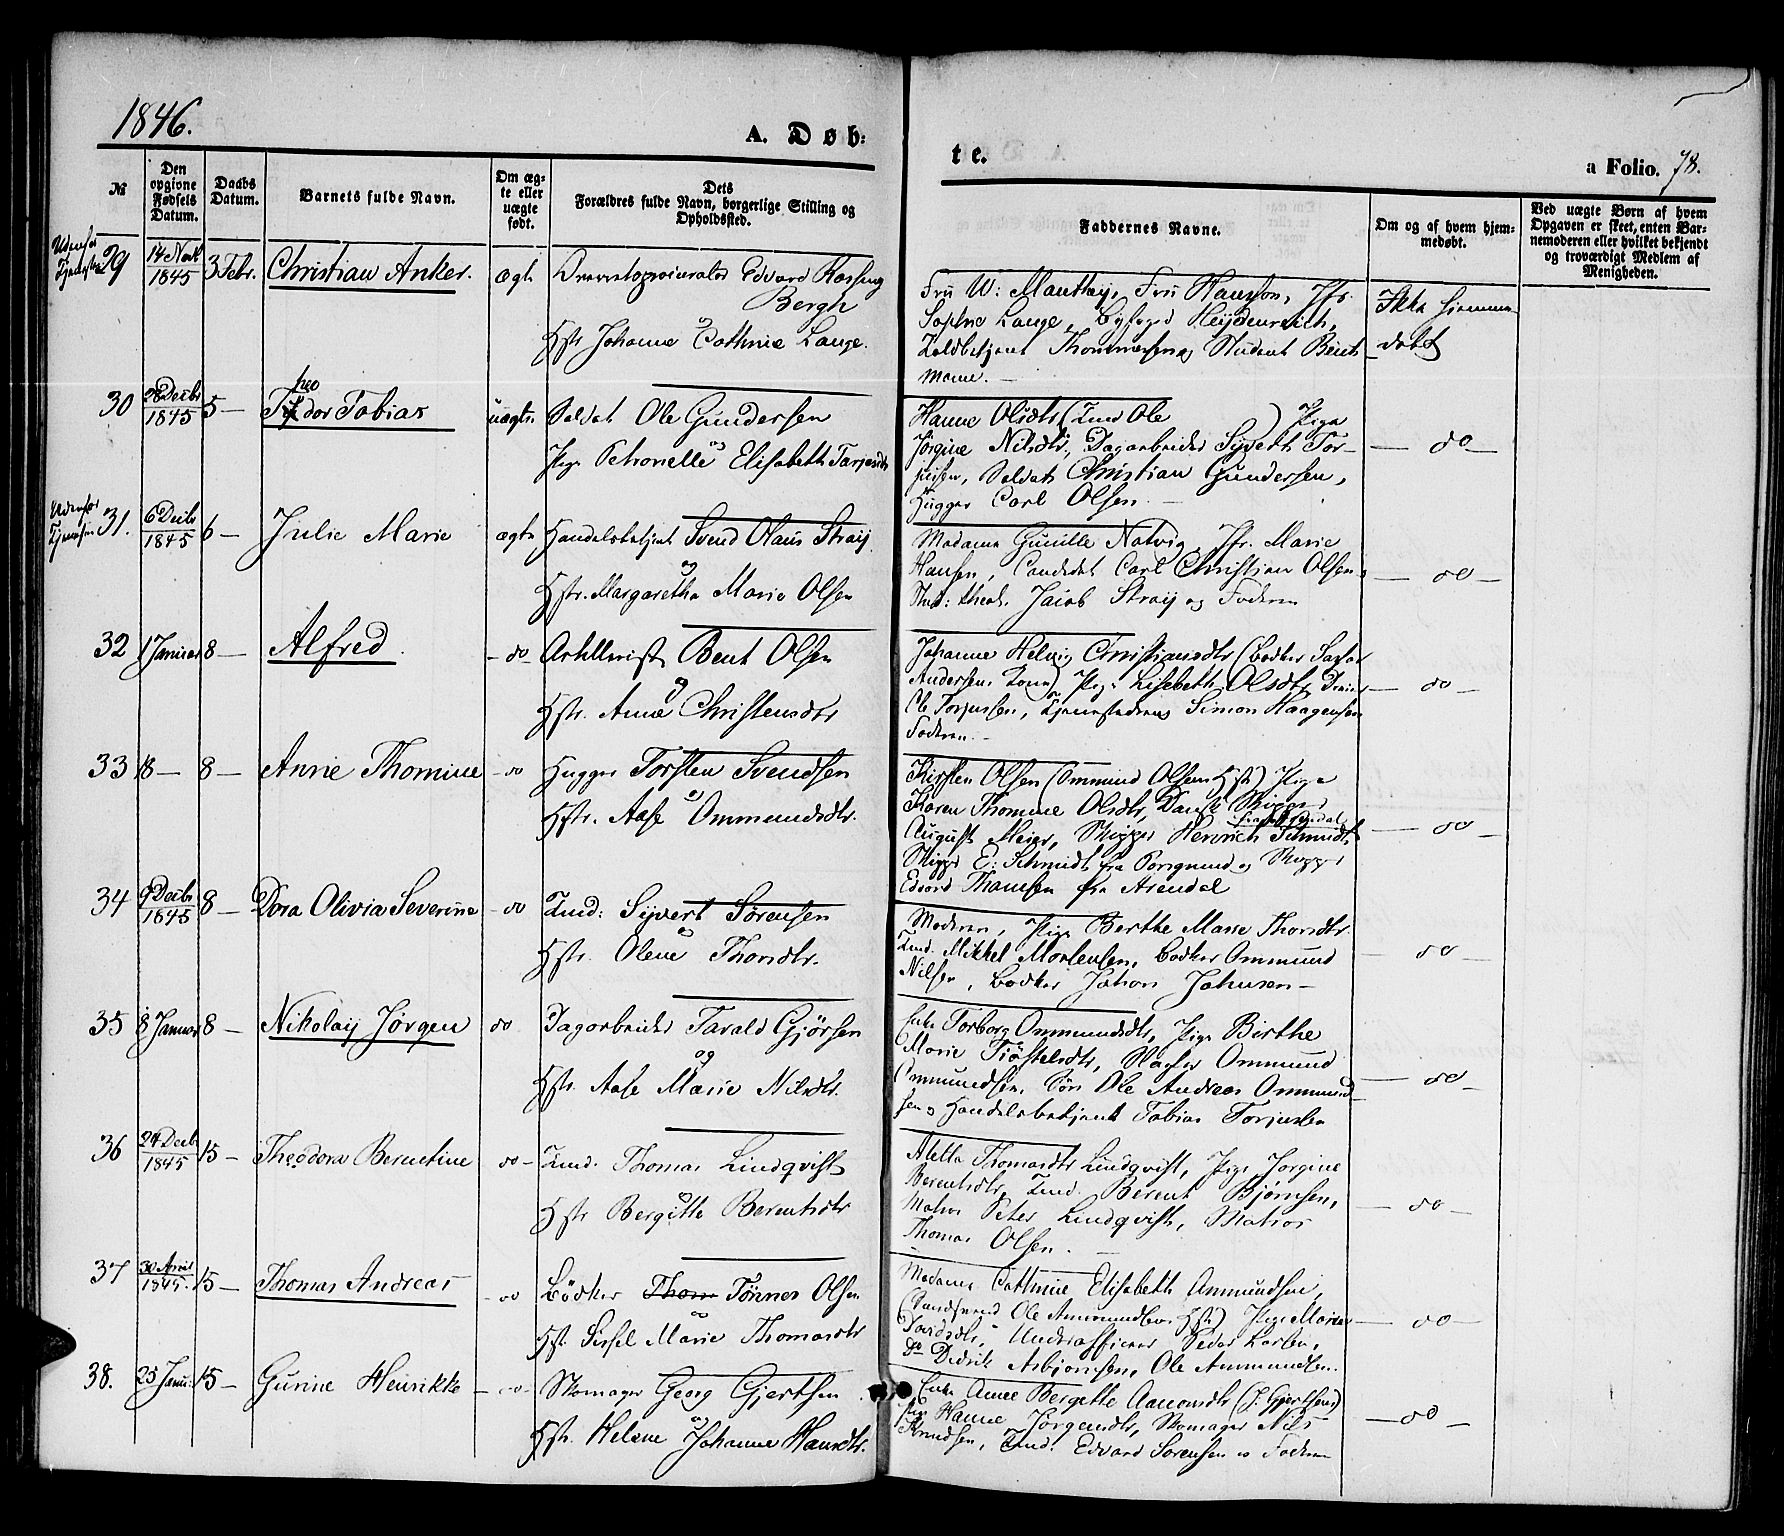 1846.
A. Døb:
te.
a Folio. 78.
№
Den opgivne Fødsels Datum.
Daabs Datum.
Barnets fulde Navn.
Om ægte eller uægte født.
Dets Forældres fulde Navn, borgerlige Stilling og Opholdssted.
Faddernes Navne.
Om og af hvem hjemmedøbt.
Ved uægte Børn af hvem Opgaven er skeet, enten Barnemoderen eller hvilket bekjendt og troværdigt Medlem af Menigheden.
29 14 Novb 1845 3 Febr. Christian Anker. ægte Edvard
Bergh
og
Hstr Johanne Cathrine Lange.
Fru W: Manthey, Fru Hansson, Jfr.
Sophie Lange, Byfoged Heijdenreich,
Toldbetjent Thommesen og Student Bent
Ikke hjemmedøbt
30 28 Decbr 1845 5 — Theodor Tobias uægte Soldat Ole Gundersen
og
Pige Petronelle Elisabeth Tarjesdt
Hanne Olsdtr ( Ole ) Pige
Jørgine Nilsdtr, Dagarbeider Syvert Tor-
jusen, Soldat Christian Gundersen,
Hugger Carl Olsen —
— do —
31. 6 Decbr 1845 6 — Julie Marie ægte Handelsbetjent Svend Olaus Straij
og
Hstr. Margarethe Marie Olsen
Madame Gunille Natvig, Jfr. Marie
Hansen, Candidat Carl Christian Olsen,
Stud: theol. Jacob Straij og Faderen
— do —
32 1 Januar 8 — Alfred. — do — Artillerist Bent Olsen
og
Hstr. Anne Christensdtr
Johanne Helvig Christiansdtr (Bødker
Andersens Kone) Pige Lisebeth Olsdtr,
Ole Torjussen, Simon Haagensen
Faderen. —
— do —
33 18 — 8 — Anne Thomine — do Hugger Torsten Svendsen
og
Hstr. Aase Ommundsdtr.
Kirsten Olsen (Ommund Olsens Hst) Pige
Karen Thomine Olsdtr, Dansk Skipper
August Meier, Skipper Henrich Schmidt
Skipper E: Schmidt fra Porsgrund og Skipper
Edvard Thomsen fra Arendal
— do —
34 9 Decbr 1845 8 — Dora Olivia Severine — do Sijvert Sørensen
og
Hstr. Olene Thorsdtr.
Moderen, Pige Berthe Marie Thorsdtr.
Mikkel Mortensen, Bødker Ommund
Nilsen, Bødker Johan Johnsen —
— do —
35 8 Januar 8 — Nikolaij Jørgen do Dagarbeider Tarald Gjørsen
og
Hstr. Aase Marie Nilsdtr.
Enke Torborg Ommundsdtr, Pige Birthe
Marie Tjøstelsdtr, Ommund
Ommundsen, Søn Ole Andreas Ommund-
sen og Handelsbetjent Tobias Torjusen
— do —
36 24 Decbr 1845 15 — Theodora Berentine do — Thomas Lindqvist
og
Hstr Bergitte Berentsdtr
Alette Thomasdtr Lindqvist, Pige Jorgine
Berentsdtr, Berent Bjørnsen,
Matros Peter Lindqvist, Matros
Thomas Olsen. —
— do —
37 30 April 1845. 15 — Thomas Andreas — do Bødker Thom Tønnes Olsen
og
Hst. Sissel Marie Thomasdtr
Madame Cathrine Elisabeth Ammundsen,
( Ole Ammundsens Hst) Pige Maren
Davidsdtr, Underofficer Peder Larsen,
do Didrik Asbjørnsen, Ole Ammundsen.
— do —
38. 25 Janu. 15 — Gurine Henrikke — do — Skomager Georg Gjertsen
og
Hst. Helene Johanne Hansdtr.
Enke Anne Bergette Aanonsdtr (J. Gjertsens)
Pige Hanne Jørgensdtr, Skomager Nils
Knudsen, Edvard Sørensen og Faderen
— do —